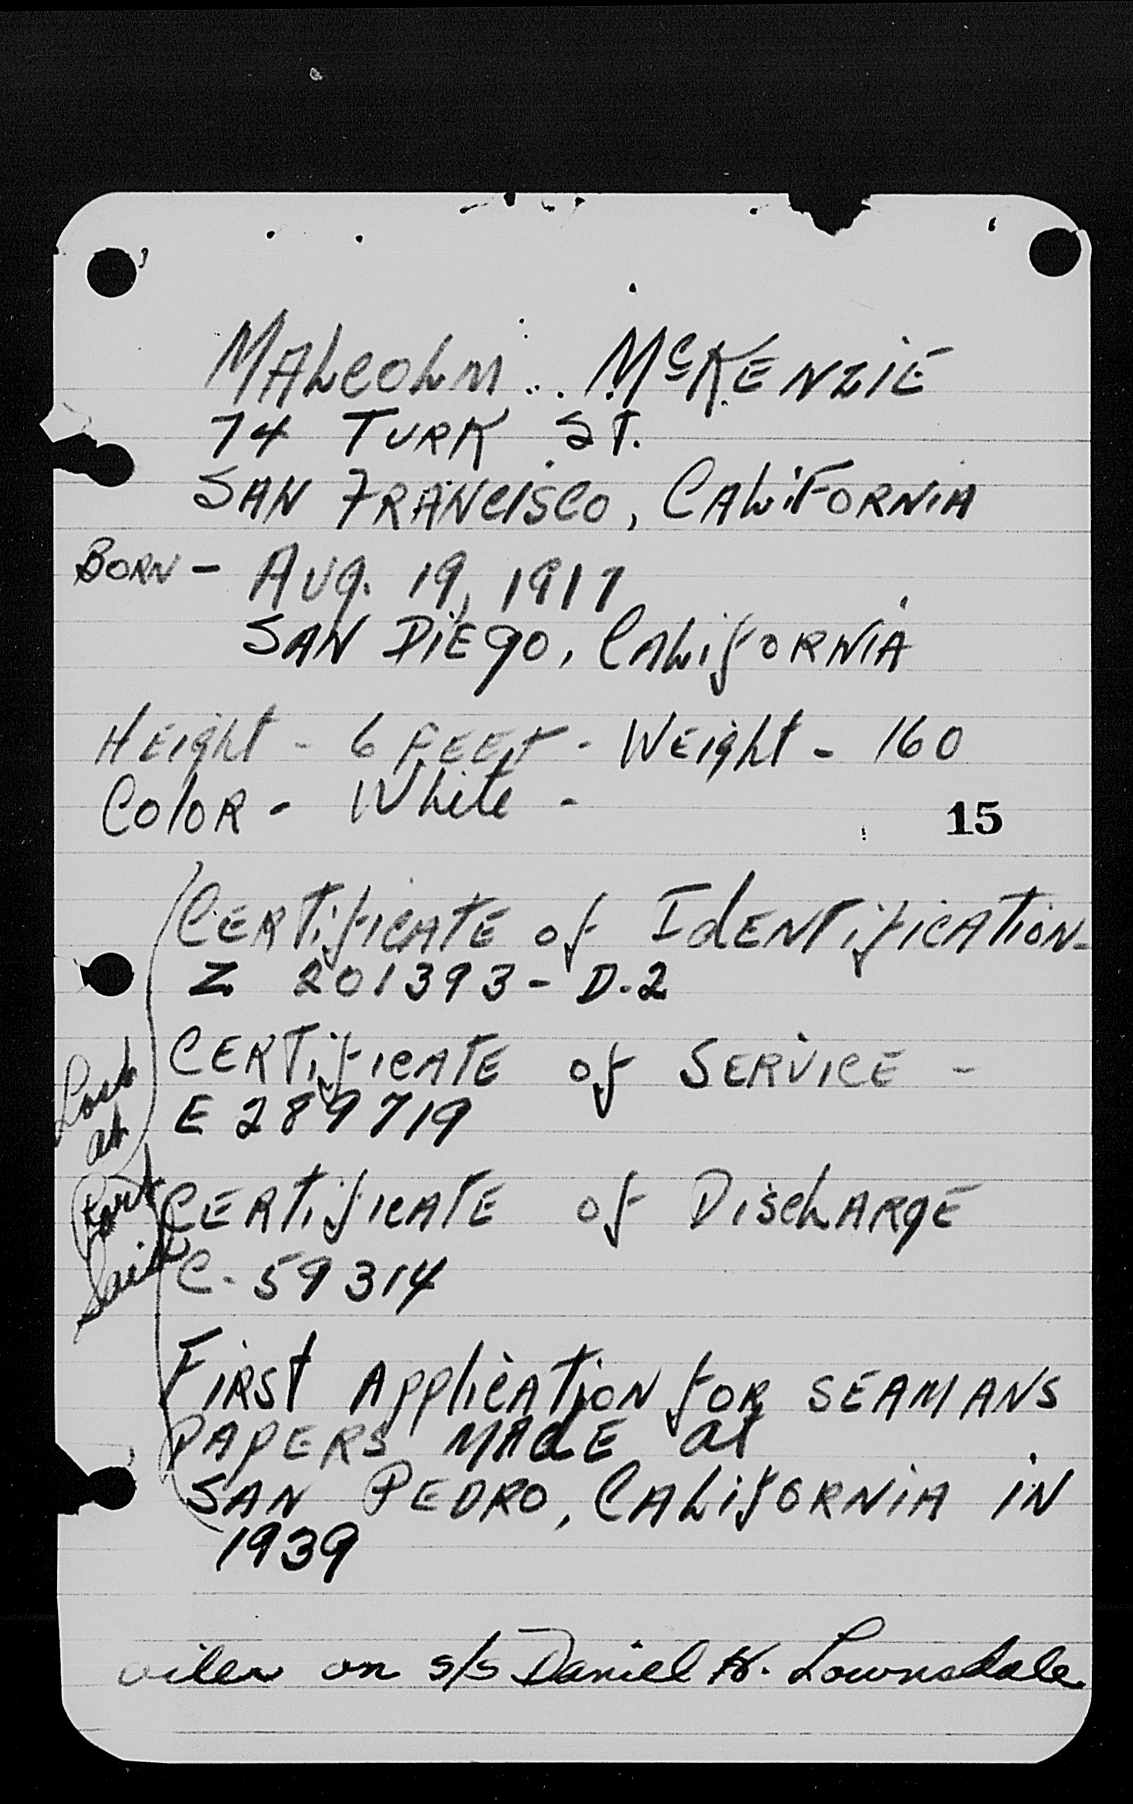 Malcolm McKenzie
74 Turk St.
San Francisco, California
Born - Aug. 19, 1917
San Diego, California
Height - 6 Feet - Weight - 160
Color - White -
15
Certificate of Identification -
Z 201393 - D.2
Certificate of Service -
E 289719
Certificate of Discharge
C - 59314
First Application for Seamans
Papers Made at
San Pedro, California in
1939
Lost
at
Port
Said
oiler on s/s Daniel H. Lownsdale